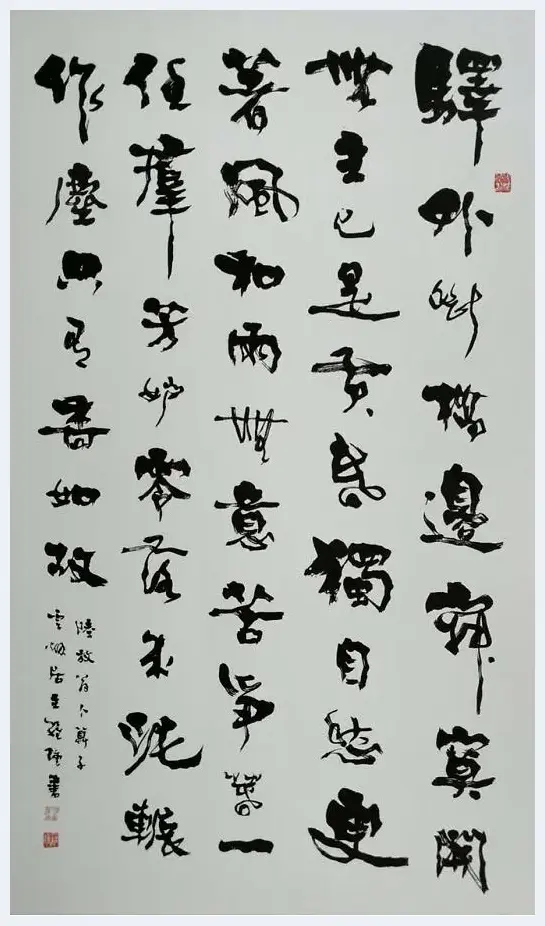 驛外斷橋邊寂寞開
無主已是黃昏獨自愁更
著風和雨無意苦爭春一
任羣芳妒零落成泥輾
作塵只有香如故
陸放翁卜算子
居主書